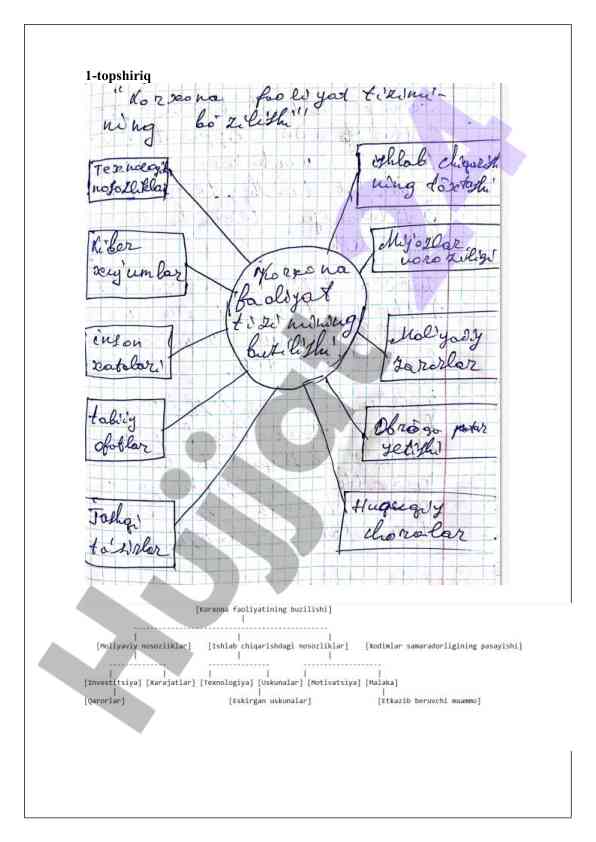 1-topshiriq
"Korxona faoliyat tizimi-
ning bo'zilishi"
Texnologik
nosozliklar
Kiber
xujumlar
inson
xatolari
tabiiy
ofatlar
Tashqi
ta'sirlar
Korxona
faoliyat
tizimining
buzilishi
ishlab chiqarish
ning to'xtashi
Mijozlar
noroziligi
Moliyaviy
zararlar
Obro'ga putur
yetishi
Huquqiy
choralar
Hujjat 24
[Korxona faoliyatining buzilishi]
[Moliyaviy nosozliklar] [Ishlab chiqarishdagi nosozliklar] [Xodimlar samaradorligining pasayishi]
[Investitsiya] [Xarajatlar] [Texnologiya] [Uskunalar] [Motivatsiya] [Malaka]
[Qarorlar] [Eskirgan uskunalar] [Etkazib beruvchi muammo]